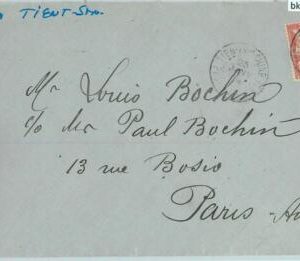 TIENTSIN.
bk
Mr Louis Bochin
c/o Mr Paul Bochin
13 rue Bosio
Paris